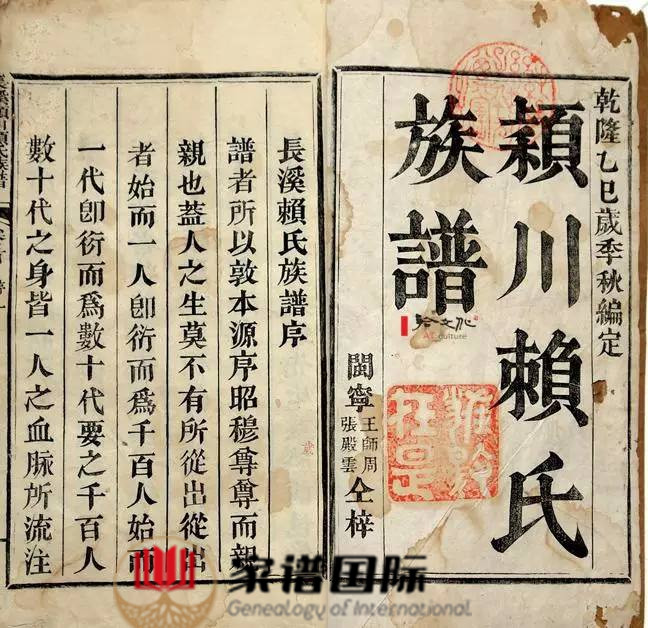 乾隆乙巳歲季秋編定
潁川賴氏
族譜
閩寧王師周張殿雲仝梓
長溪賴氏族譜序
譜者所以敦本源序昭穆尊尊而親
親也蓋人之生莫不有所從出從出
者始而一人卽衍而爲千百人始而
一代卽衍而爲數十代要之千百人
數十代之身皆一人之血脉所流注
家谱国际
Genealogy of International